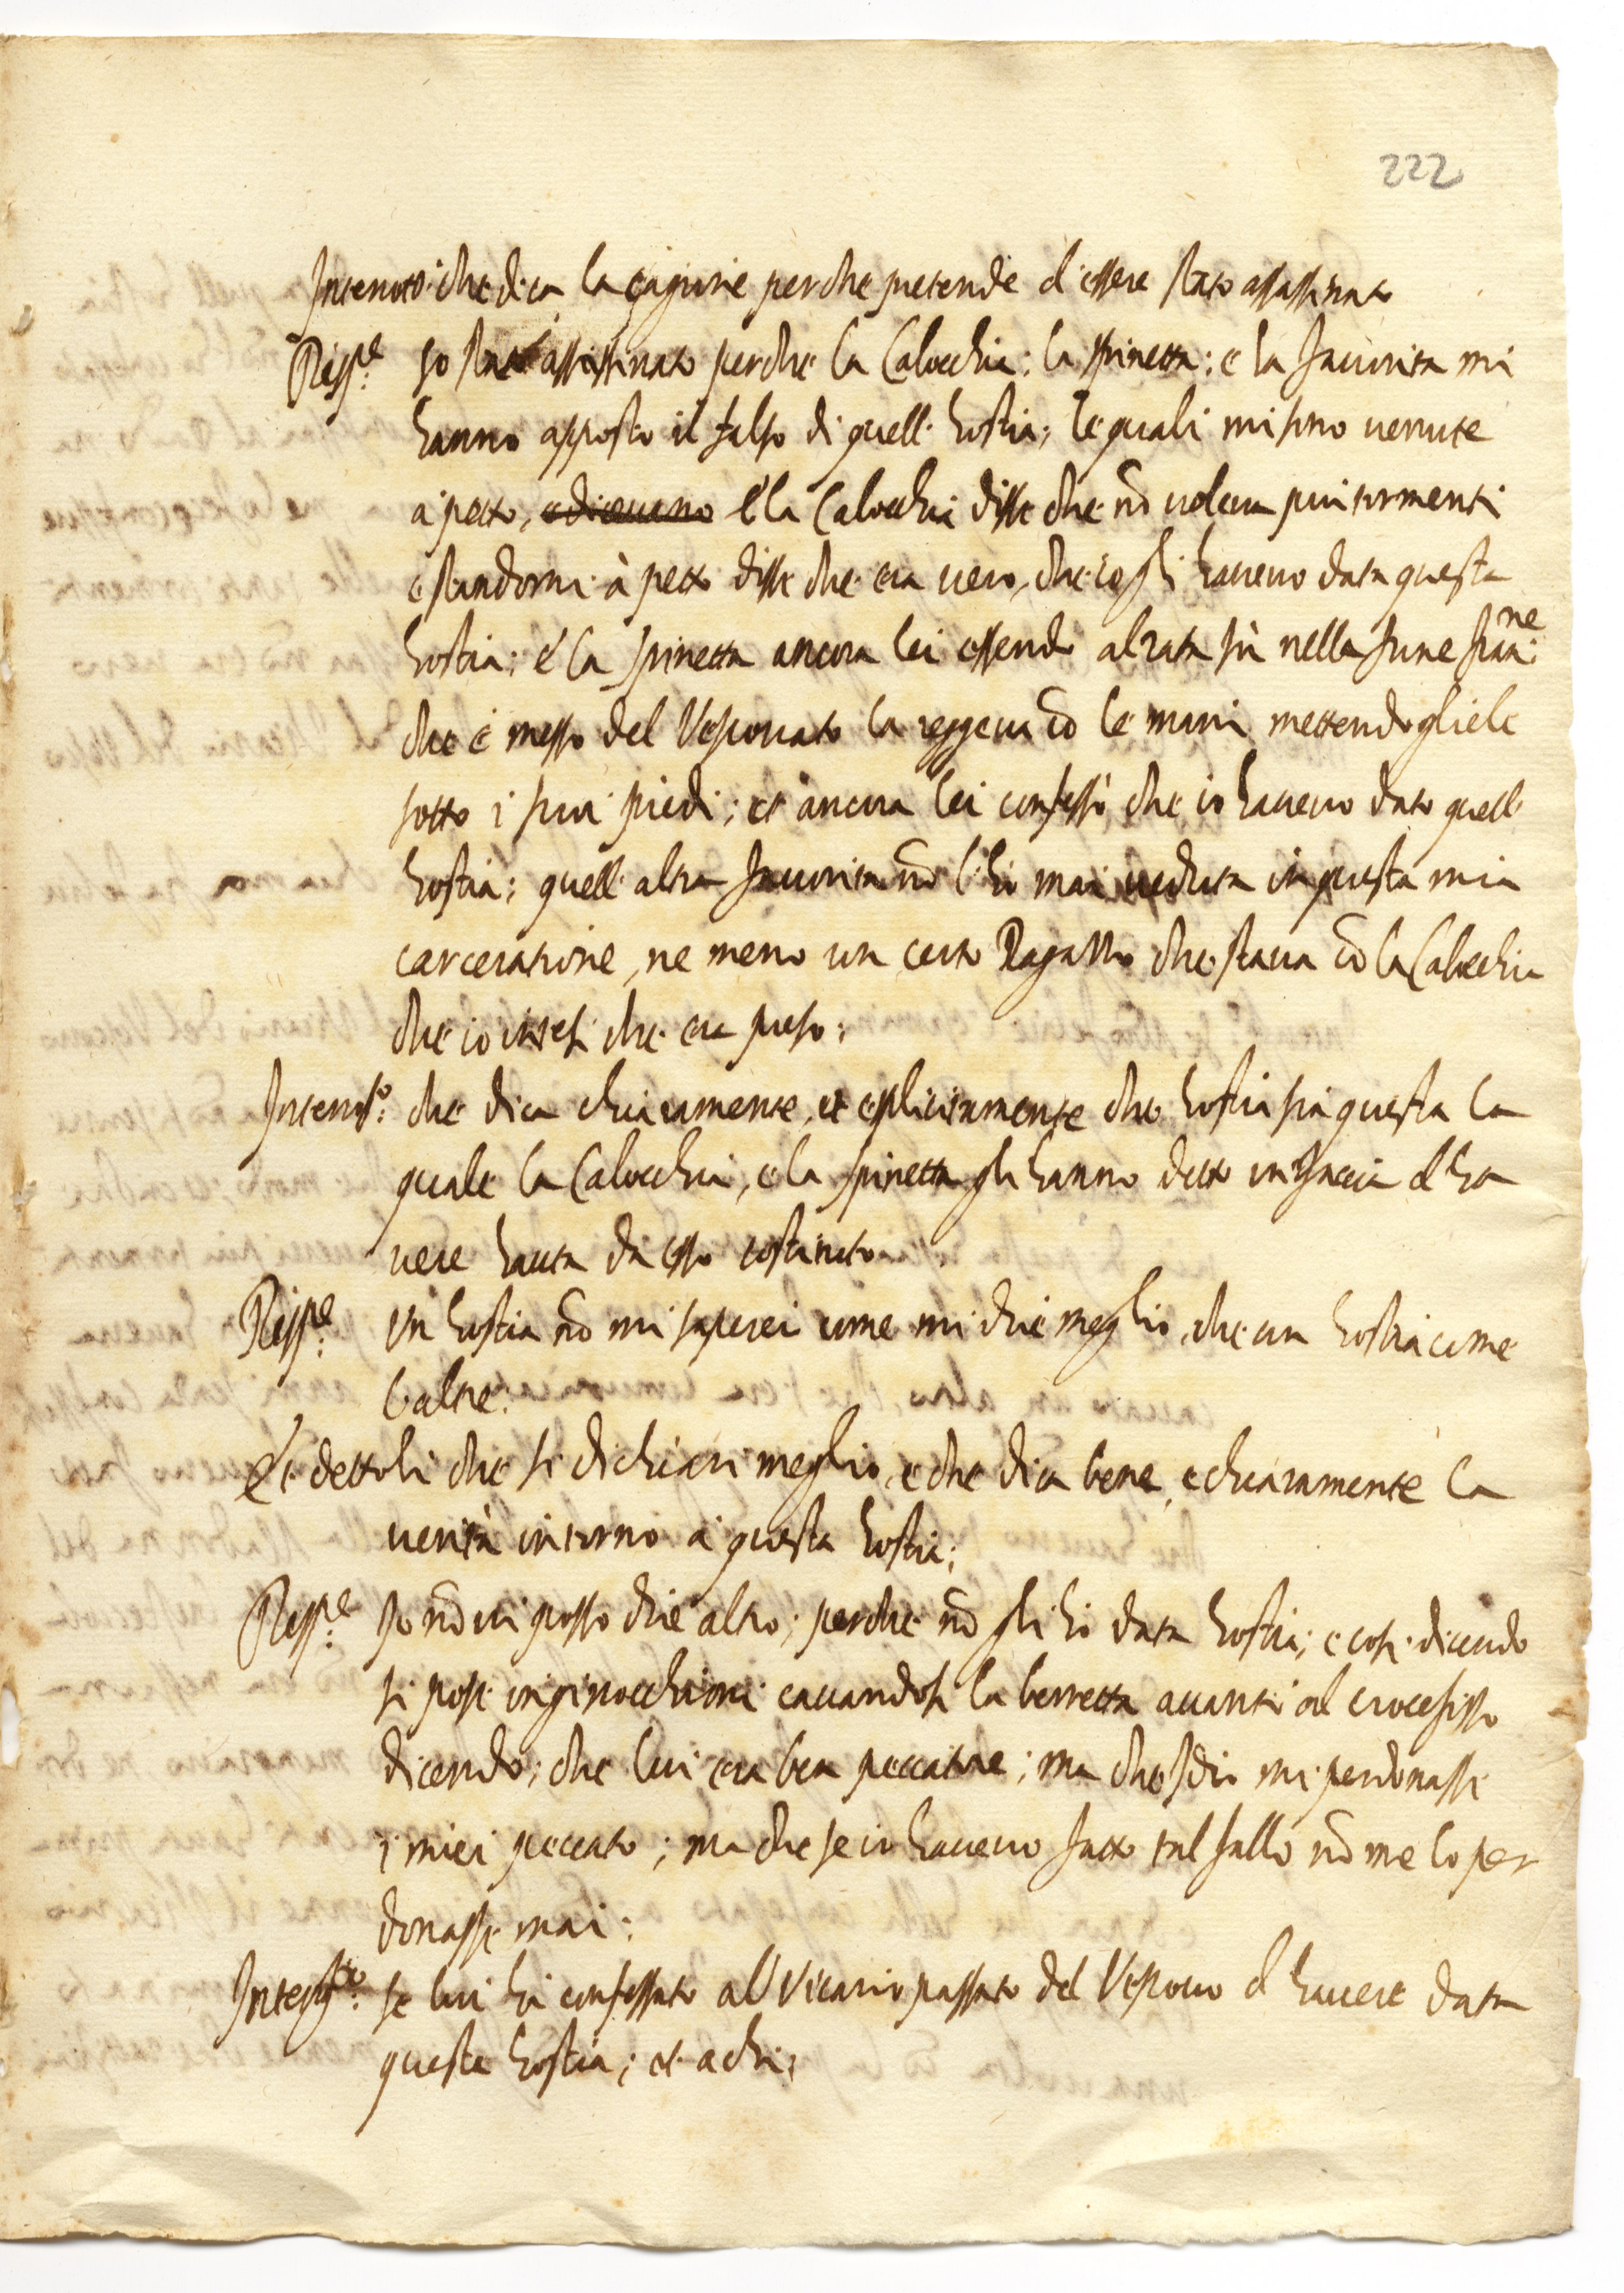 222
Interrotto: che dica la cagione perche pretende d'essere stato assassinato
Risp.e Io stato assassinato perche la Calocchia: la spinetta: e la fauorita mi
hanno apposto il falso di quell' hostia; le quali mi sono uenute
à petto, e diceuano e la Calocchia disse che nō uoleua piu tormenti
e standomi à petto disse che era uero, che io gli haueuo data questa
hostia; e la spinetta ancora lei essendo alzata sù nella fune
che è messo del Vescouato la reggeua cō le mani mettendogliele
sotto i suoi piedi; et ancora lei confessò che io haueuo dato quell'
hostia; quell' altra fauorita nō l'hò mai ueduta in questa mia
carceratione, ne meno un certo Ragazzo che staua cō la Calocchia
che io intesi che era preso:
Interr.to: che dica chiaramente, et esplicitamente che hostia sia questa la
quale la Calocchia, e la spinetta gli hanno detto in faccia d'ha
uere hauta da esso costituto
Risp.e Un hostia nō mi saperei come mi dire meglio, che un hostia come
l'altre:
E dettoli che si dichiari meglio, e che dica bene, e chiaramente la
uerità intorno à questa hostia;
Risp.e Io nō ui posso dire altro; perche nō gli hò data hostia; e cosi dicendo
si pose inginocchioni cauandosi la berretta auanti al crocefisso
dicendo; che lui era ben peccatore; ma che Idio mi perdonassi
i miei peccato; ma che se io haueuo fatto tal fallo nō me lo per
donassi mai:
Interr.to: se lui hà confessato al Vicario passato del Vescouo d'hauere data
questa hostia; et a chi;